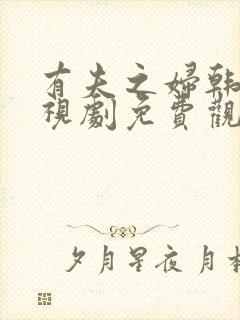 有夫之婦韩
視劇免費觀
夕月星夜 月